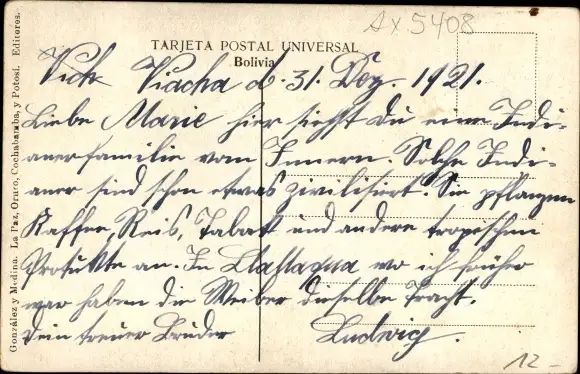 AX 5408
TARJETA POSTAL UNIVERSAL
Bolivia
Viacha d. 31. Dez. 1921.
Liebe Marie hier siehst Du eine Indi-
anerfamilie vom Innern. Solche Indi-
aner sind schon etwas zivilisiert. Sie pflanzen
Kaffee, Reis, Tabak und andere tropischen
Produkte an. In Llallagua wo ich früher
war haben die Weiber dieselbe Tracht.
Dein treuer Bruder Ludwig.
12-
González y Medina. La Paz, Oruro, Cochabamba, y Potosí. Editores.